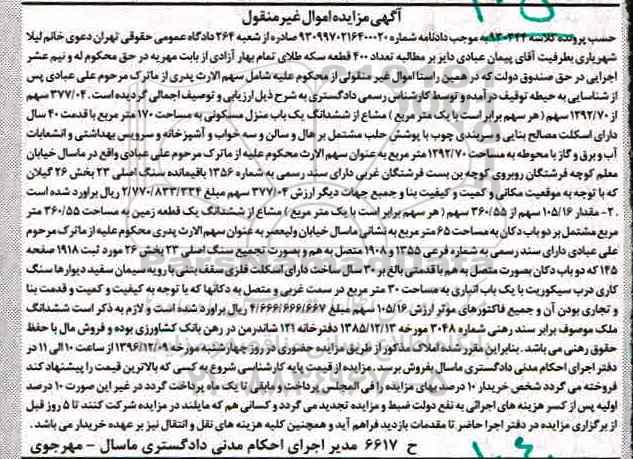 آگهی مزایده اموال غیر منقول
حسب پرونده کلاسه ۹۳۰۴۴۴ به موجب دادنامه شماره ۹۳۰۹۹۷۰۲۱۶۴۰۰۰۲۰ صادره از شعبه ۲۶۴ دادگاه عمومی حقوقی تهران دعوی خانم لیلا
شهریاری بطرفیت آقای پیمان عبادی دایر بر مطالبه تعداد ۴۰۰ قطعه سکه طلای تمام بهار آزادی از بابت مهریه در حق محکوم له و نیم عشر
اجرایی در حق صندوق دولت که در همین راستا اموال غیر منقولی از محکوم علیه شامل سهم الارث پدری از ماترک مرحوم علی عبادی پس
از شناسایی به حیطه توقیف درآمده و توسط کارشناس رسمی دادگستری به شرح ذیل ارزیابی و توصیف اجمالی گردیده است. ۳۷۷/۰۴ سهم
از ۱۲۹۲/۷۰ سهم ( هر سهم برابر است با یک متر مربع ) مشاع از ششدانگ یک باب منزل مسکونی به مساحت ۱۷۰ متر مربع با قدمت ۴۰ سال
دارای اسکلت مصالح بنایی و سربندی چوب با پوشش حلب مشتمل بر هال و سالن و سه خواب و آشپزخانه و سرویس بهداشتی و انشعابات
آب و برق و گاز با محوطه به مساحت ۱۲۹۲/۷۰ متر مربع به عنوان سهم الارث محکوم علیه از ماترک مرحوم علی عبادی واقع در ماسال خیابان
معلم کوچه فرشتگان روبروی کوچه بن بست فرشتگان غربی دارای سند رسمی به شماره ۱۳۵۶ باقیمانده سنگ اصلی ۲۳ بخش ۲۶ گیلان
که با توجه به موقعیت مکانی و کمیت و کیفیت بنا و جمیع جهات دیگر ارزش ۳۷۷/۰۴ سهم مبلغ ۲/۷۷۰/۸۳۳/۳۳۴ ریال برآورد شده است
۲- مقدار ۱۰۵/۱۶ سهم از ۳۶۰/۵۵ سهم ( هر سهم برابر است با یک متر مربع ) مشاع از ششدانگ یک قطعه زمین به مساحت ۳۶۰/۵۵ متر
مربع مشتمل بر دو باب دکان به مساحت ۶۵ متر مربع به نشانی ماسال خیابان ولیعصر به عنوان سهم الارث پدری محکوم علیه از ماترک مرحوم
علی عبادی دارای سند رسمی به شماره فرعی ۱۳۵۵ و ۱۹۰۸ متصل به هم و بصورت تجمیع سنگ اصلی ۲۳ بخش ۲۶ مورد ثبت ۱۹۱۸ صفحه
۱۴۵ که دو باب دکان بصورت متصل به هم با قدمتی بالغ بر ۳۰ سال ساخت دارای اسکلت فلزی سقف بتنی با رویه سیمان سفید دیوارها سنگ
کاری درب سیکوریت با یک باب انباری به مساحت ۳۰ متر مربع در سمت غربی و متصل به دکانها که با توجه به کیفیت و کمیت و قدمت بنا
و تجاری بودن آن و جمیع فاکتورهای موثر ارزش ۱۰۵/۱۶ سهم مبلغ ۴/۶۶۶/۶۶۶/۶۶۷ ریال برآورد شده است و لازم به ذکر است ششدانگ
ملک موصوف برابر سند رهنی شماره ۳۰۴۸ مورخه ۱۳۸۵/۱۲/۱۳ دفترخانه ۱۲۱ شاندرمن در رهن بانک کشاورزی بوده و فروش مال با حفظ
حقوق رهنی می باشد. بنابراین مقرر شده املاک مذکور از طریق مزایده حضوری در روز چهارشنبه مورخه ۱۳۹۶/۱۲/۰۹ از ساعت ۱۰ الی ۱۱ در
دفتر اجرای احکام مدنی دادگستری ماسال بفروش برسد. مزایده از قیمت پایه کارشناسی شروع به کسی که بالاترین قیمت را پیشنهاد کند
فروخته می گردد شخص خریدار ۱۰ درصد بهای مزایده را فی المجلس پرداخت و مابقی تا یک ماه پرداخت گردد در غیر این صورت ۱۰ درصد
اولیه پس از کسر هزینه های اجرائی به نفع دولت ضبط و مزایده تجدید می گردد و کسانی هم که مایلند در مزایده شرکت کنند تا ۵ روز قبل
از برگزاری مزایده در دفتر اجرا حاضر تا مقدمات بازدید فراهم آید و همچنین کلیه هزینه های نقل و انتقال نیز بر عهده خریدار می باشد.
ح ۶۶۱۷ مدیر اجرای احکام مدنی دادگستری ماسال - مهرجوی